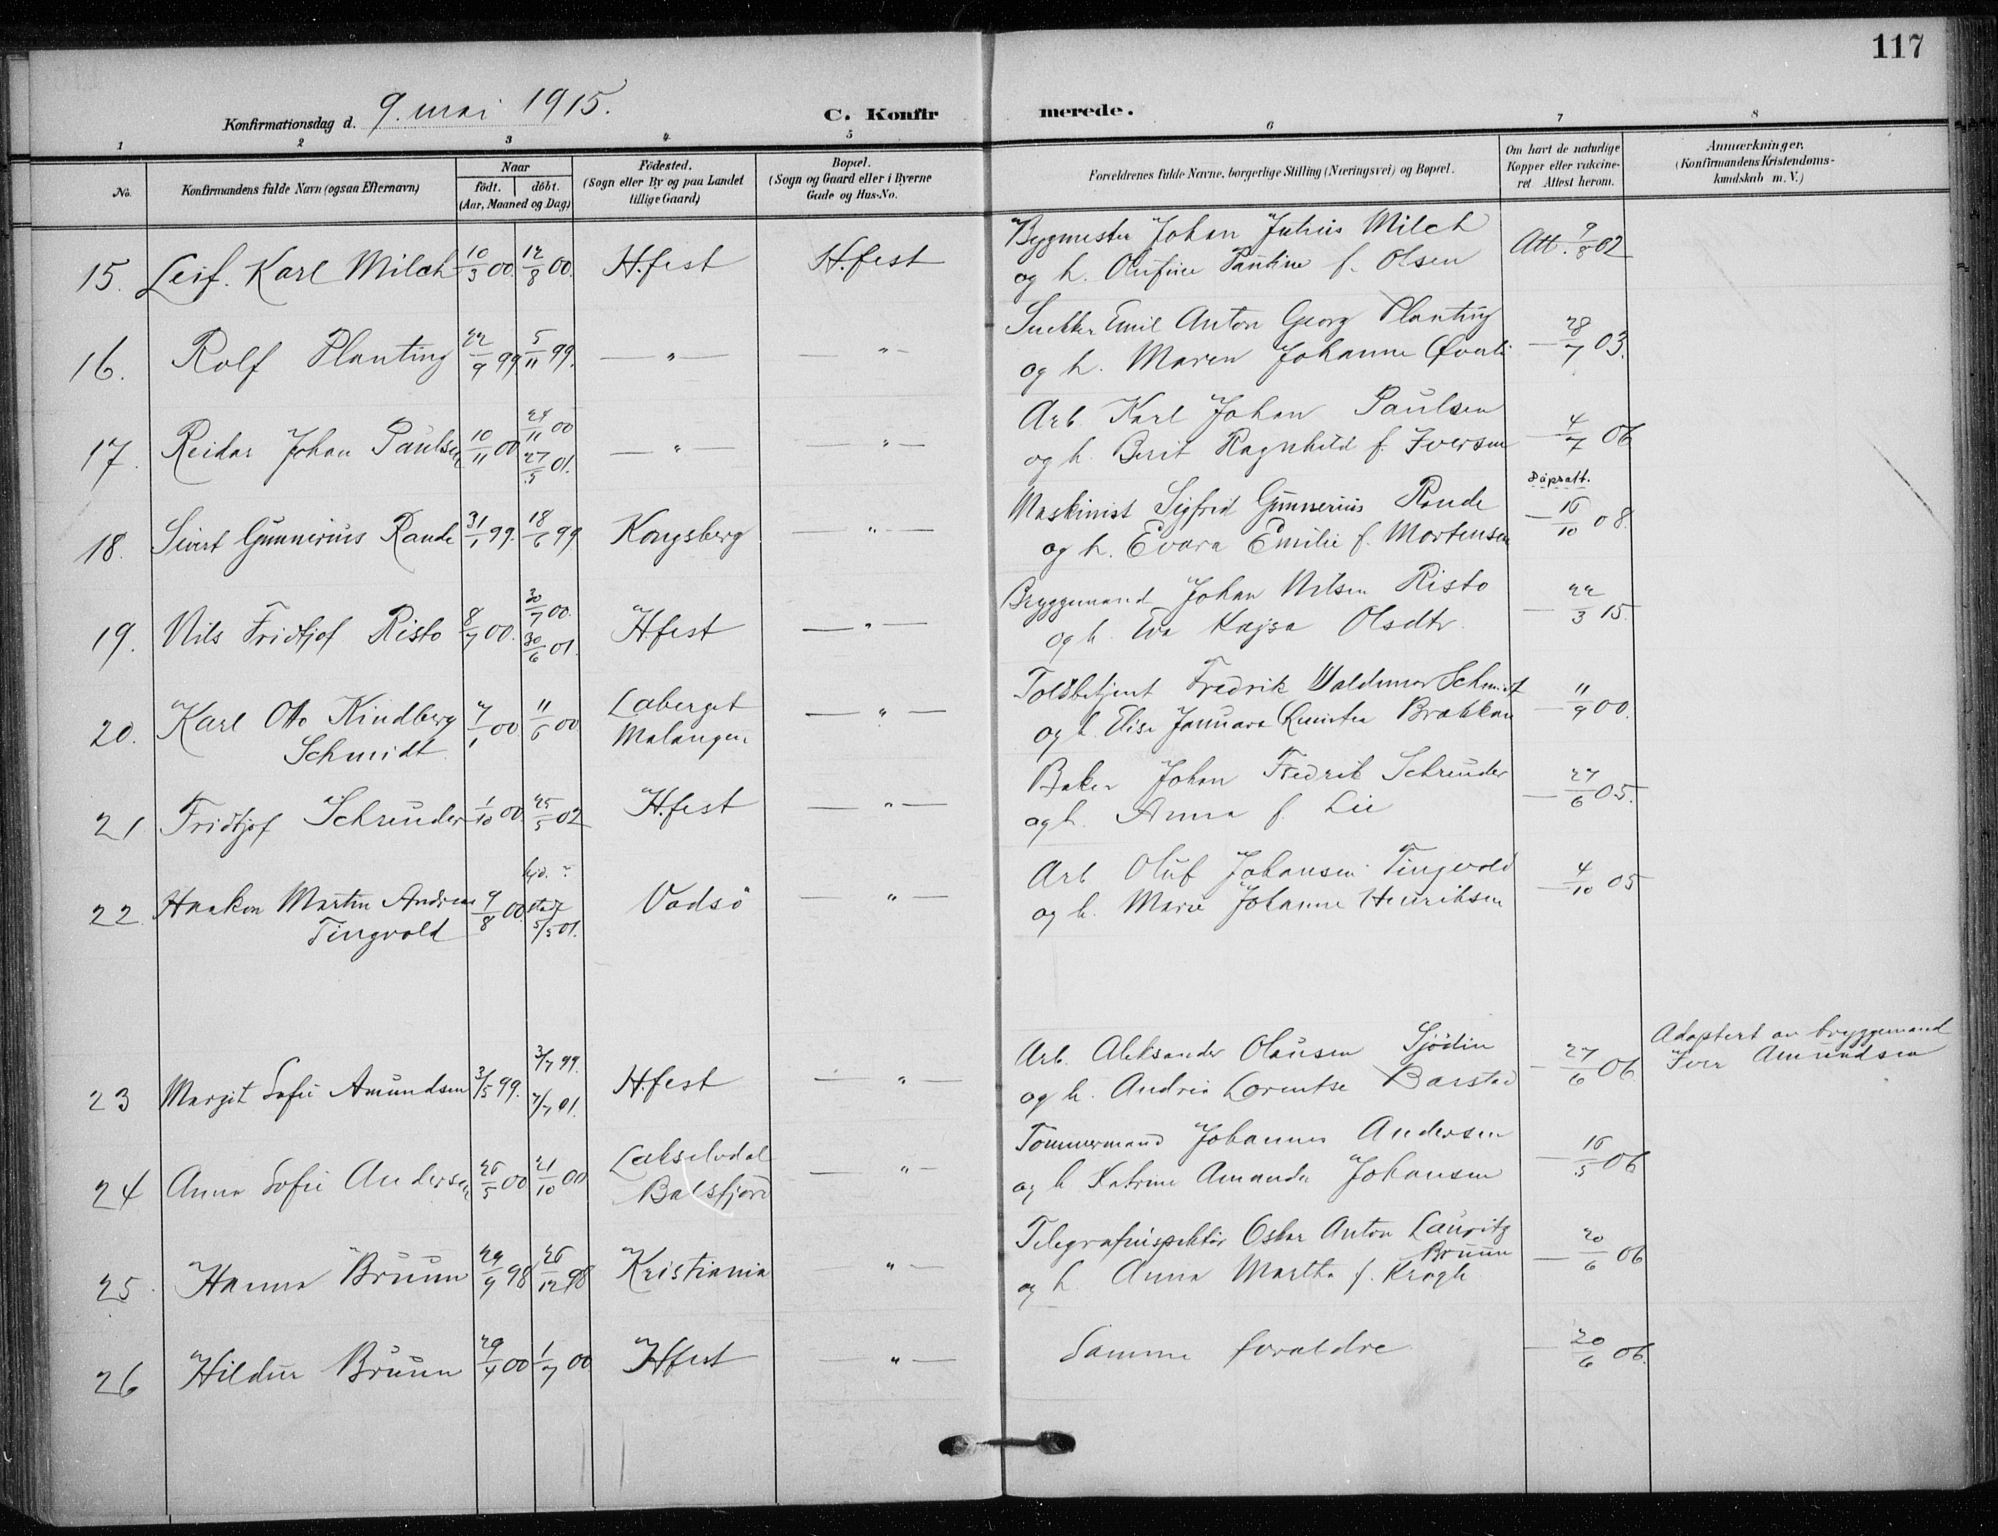 117
Konfirmationsdag d. 9. mai 1915.
C. Konfirmerede.
1 2 3 4 5 6 7 8
No.
Konfirmandens fulde Navn (ogsaa Efternavn)
Naar
födt. döbt.
(Aar, Maaned og Dag)
Födested.
(Sogn eller By og paa Landet
tillige Gaard)
Bopæl.
(Sogn og Gaard eller i Byerne
Gade og Hus-No.
Forældrenes fulde Navne, borgerlige Stilling (Næringsvei) og Bopæl.
Om havt de naturlige
Kopper eller vakcine-
ret Attest herom.
Anmærkninger.
(Konfirmandens Kristendoms-
kundskab m. V.)
15. Leif. Karl Milch 10/3 00 12/8 00. H.fest H.fest
Bygmester Johan Julius Milch Att. 9/8 02
og h. Olufine Pauline f. Olsen
16. Rolf Planting 22/9 99 5/11 99. — " — " —
Emil Anton Georg Planting — 28/7 03.
og h. Maren Johanne Øverli
17. Reidar Johan Paulsen 10/11 00 24/11 00 27/5 01. — " — — " —
Arb. Karl Johan Paulsen — 4/7 06
og h. Berit Ragnhild f. Iversen
18. Sivert Gunnerius Rande 31/1 99. 18/6 99 Kongsberg — " —
Maskinist Sigfrid Gunnerius Rande Dåpsatt. — 16/10 08.
og h. Evara Emilie f. Mortensen
19. Nils Fridtjof Risto 8/7 00. 30/7 00. 30/6 01. H.fest — " —
Bryggemand Johan Nilsen Risto — 22/3 15.
og h. Eva Kajsa Olsdtr.
20. Karl Otto Kindberg 7/1 00 11/6 00 Laberget — " —
Schmidt Malangen
Toldbetjent Fredrik Waldemar Schmidt — 11/9 00.
og h. Elise Januara Brækkan
21 Fridtjof Schreuder 1/10 00 25/5 02 H.fest — " —
Baker Johan Fredrik Schreuder — 27/6 05.
og h. Anna f. Lie
22. Haakon Martin Andreas 9/8 00. stad. 5/5 01. Vadsö — " —
Tingvold
Arb Oluf Johansen Tingvold — 4/10 05
og h. Marie Johanne Henriksen
23 Margit Sofie Amundsen 3/5 99. 3/7 99. 7/7 01. H.fest — " —
Arb. Aleksander Olausen Sjödin — 27/6 06
og h. Andrea Lorentse Barstad
Adoptert av bryggemand
Iver Amundsen
24 Anna Sofie Andersen 26/5 00 21/10 00 Lakselvdal — " —
Balsfjord
Tömmermand Johannes Andersen — 16/5 06
og h Katrine Amanda Johansen
25 Hanna Bruun 24/9 98 26/12 98 Kristiania — " —
Telegrafinspektör Oskar Anton Lauritz — 20/6 06
Bruun
og h. Anna Martha f. Krogh
26 Hildur Bruun 29/4 00 1/7 00 Hfest — " —
Samme forældre — 20/6 06.